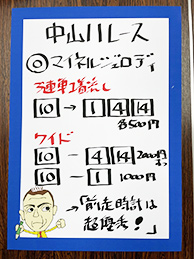 中山11レース
◎マイネルジェロディ
3連単1着流し
10→1 4 14
各500円
ワイド
10－4 14 2000円ずつ
10－1 1000円
→「前走時計は
超優秀！」